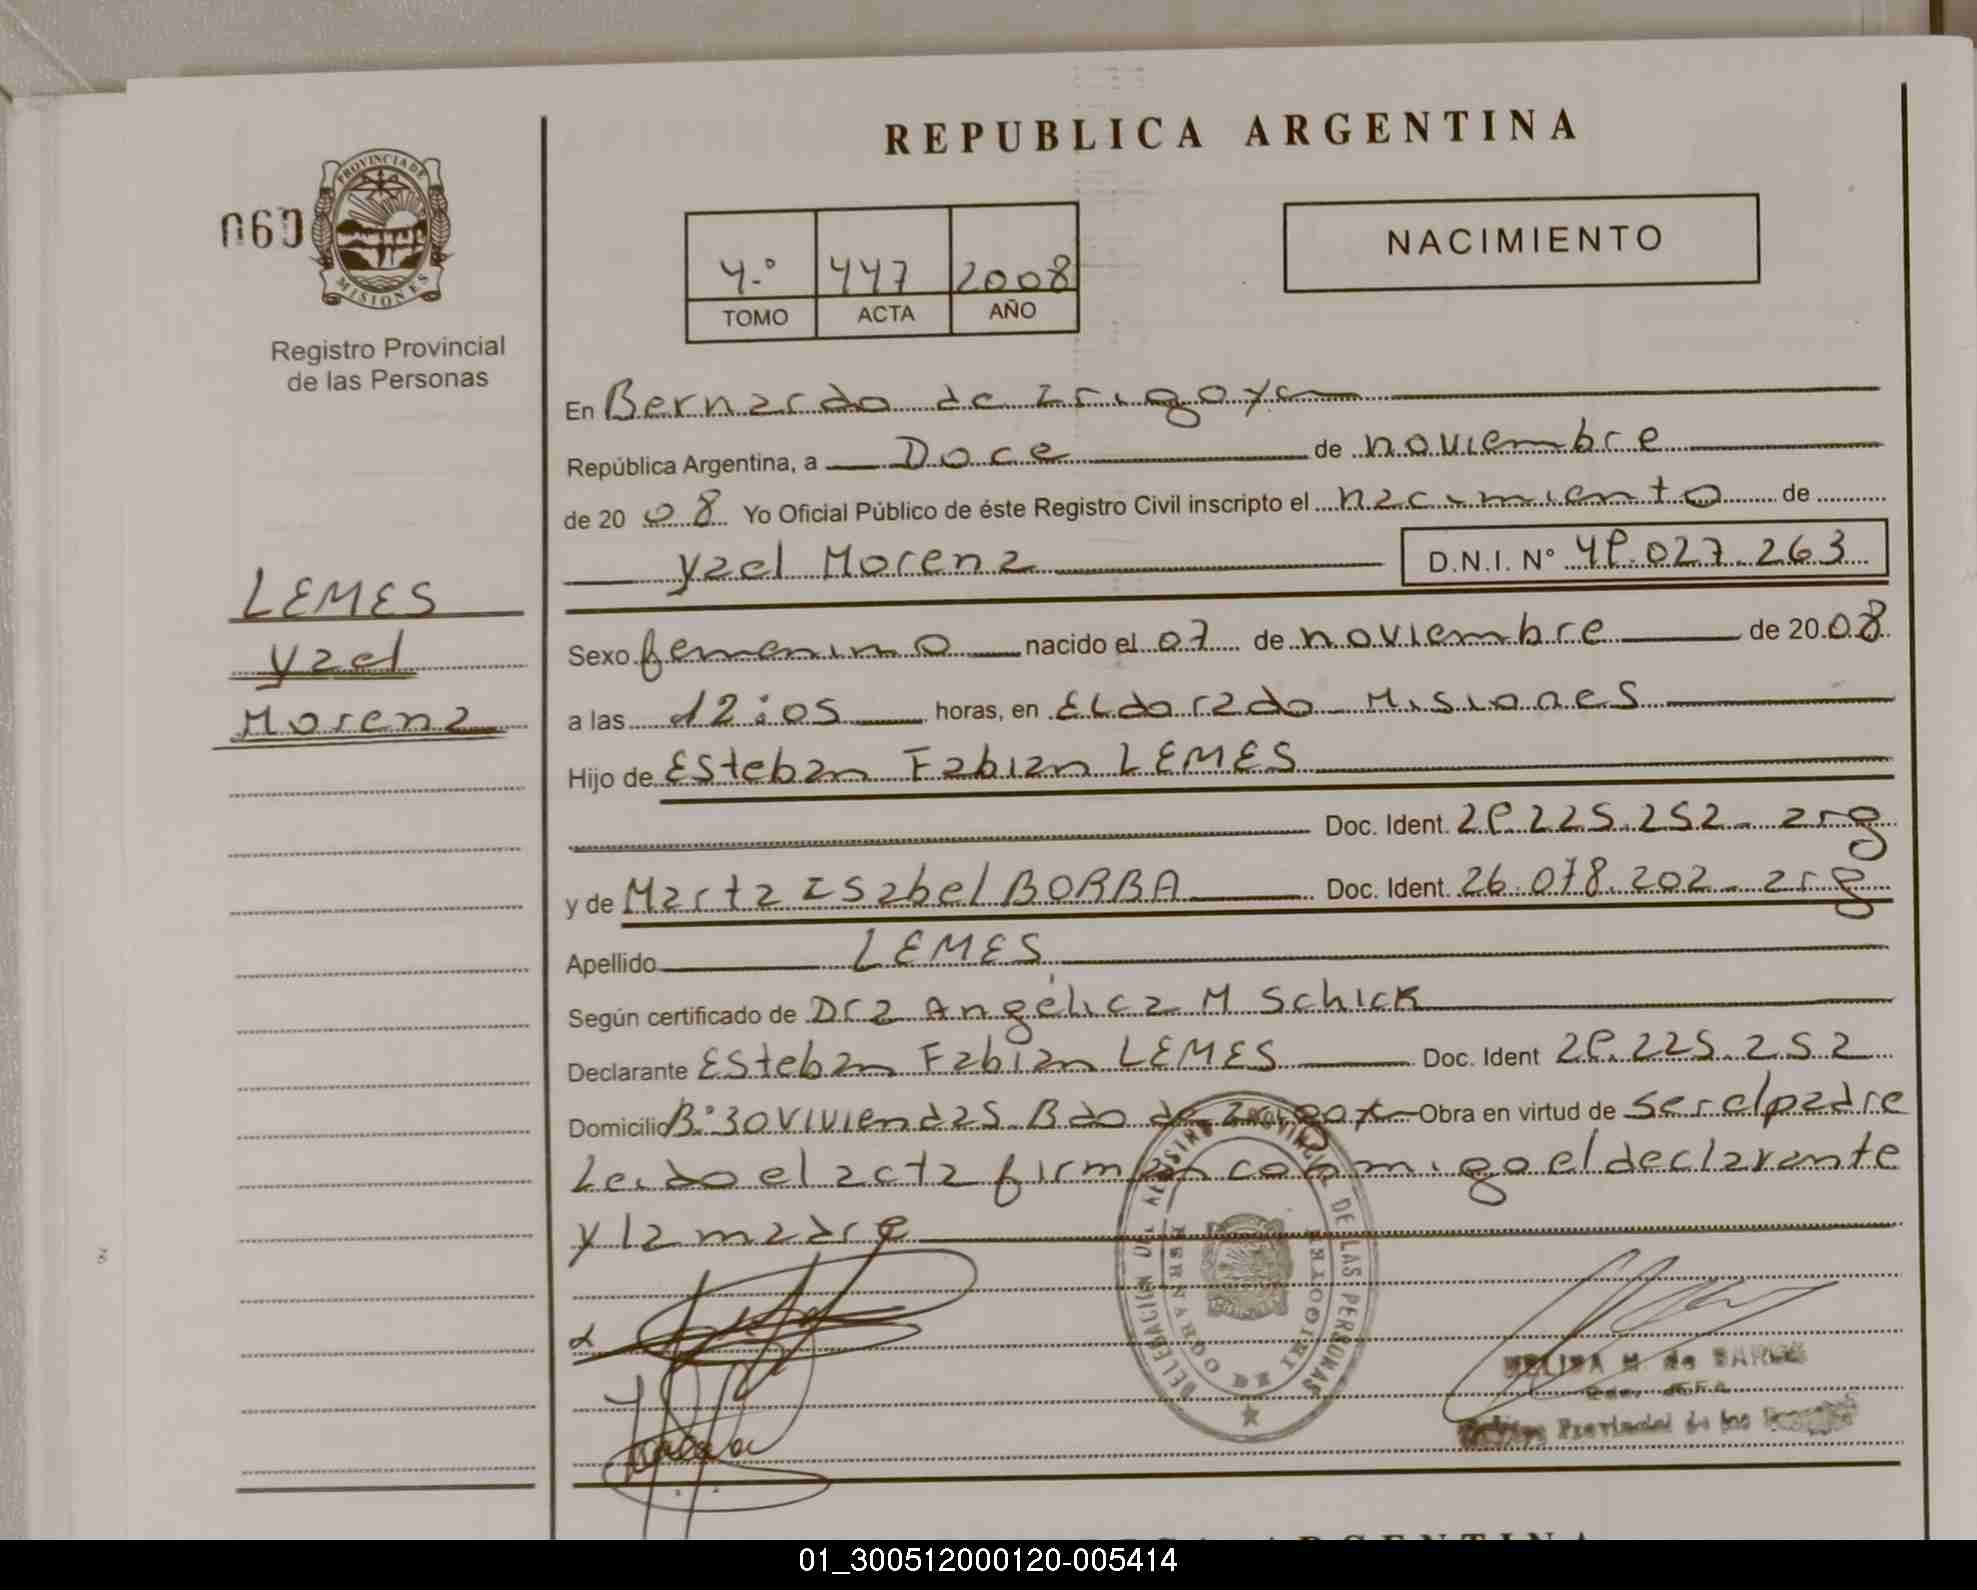 REPUBLICA ARGENTINA
060
PROVINCIA DE
MISIONES
Registro Provincial
de las Personas
4.° 447 2008
TOMO ACTA AÑO
NACIMIENTO
En Bernardo de Irigoyen
República Argentina, a Doce de noviembre
de 20 08 Yo Oficial Público de éste Registro Civil inscripto el nacimiento de
Yael Morena D.N.I. N° 49.027.263
LEMES
Yael
Morena
Sexo femenino nacido el 07 de noviembre de 20 08
a las 12:05 horas, en Eldorado Misiones
Hijo de Esteban Fabian LEMES
Doc. Ident. 29.225.252 - arg
y de Marta Isabel BORBA Doc. Ident. 26.078.202 - arg
Apellido LEMES
Según certificado de Dra Angélica M Schick
Declarante Esteban Fabian LEMES Doc. Ident 29.225.252
Domicilio B° 30 viviendas Bdo de Irigoyen Obra en virtud de ser el padre
Leido el acta firman conmigo el declarante
y la madre
DELEGACION DEL REGISTRO PROVINCIAL DE LAS PERSONAS
BERNARDO DE IRIGOYEN
MELIDA M. de
Provincial de las
ARGENTINA
01_300512000120-005414